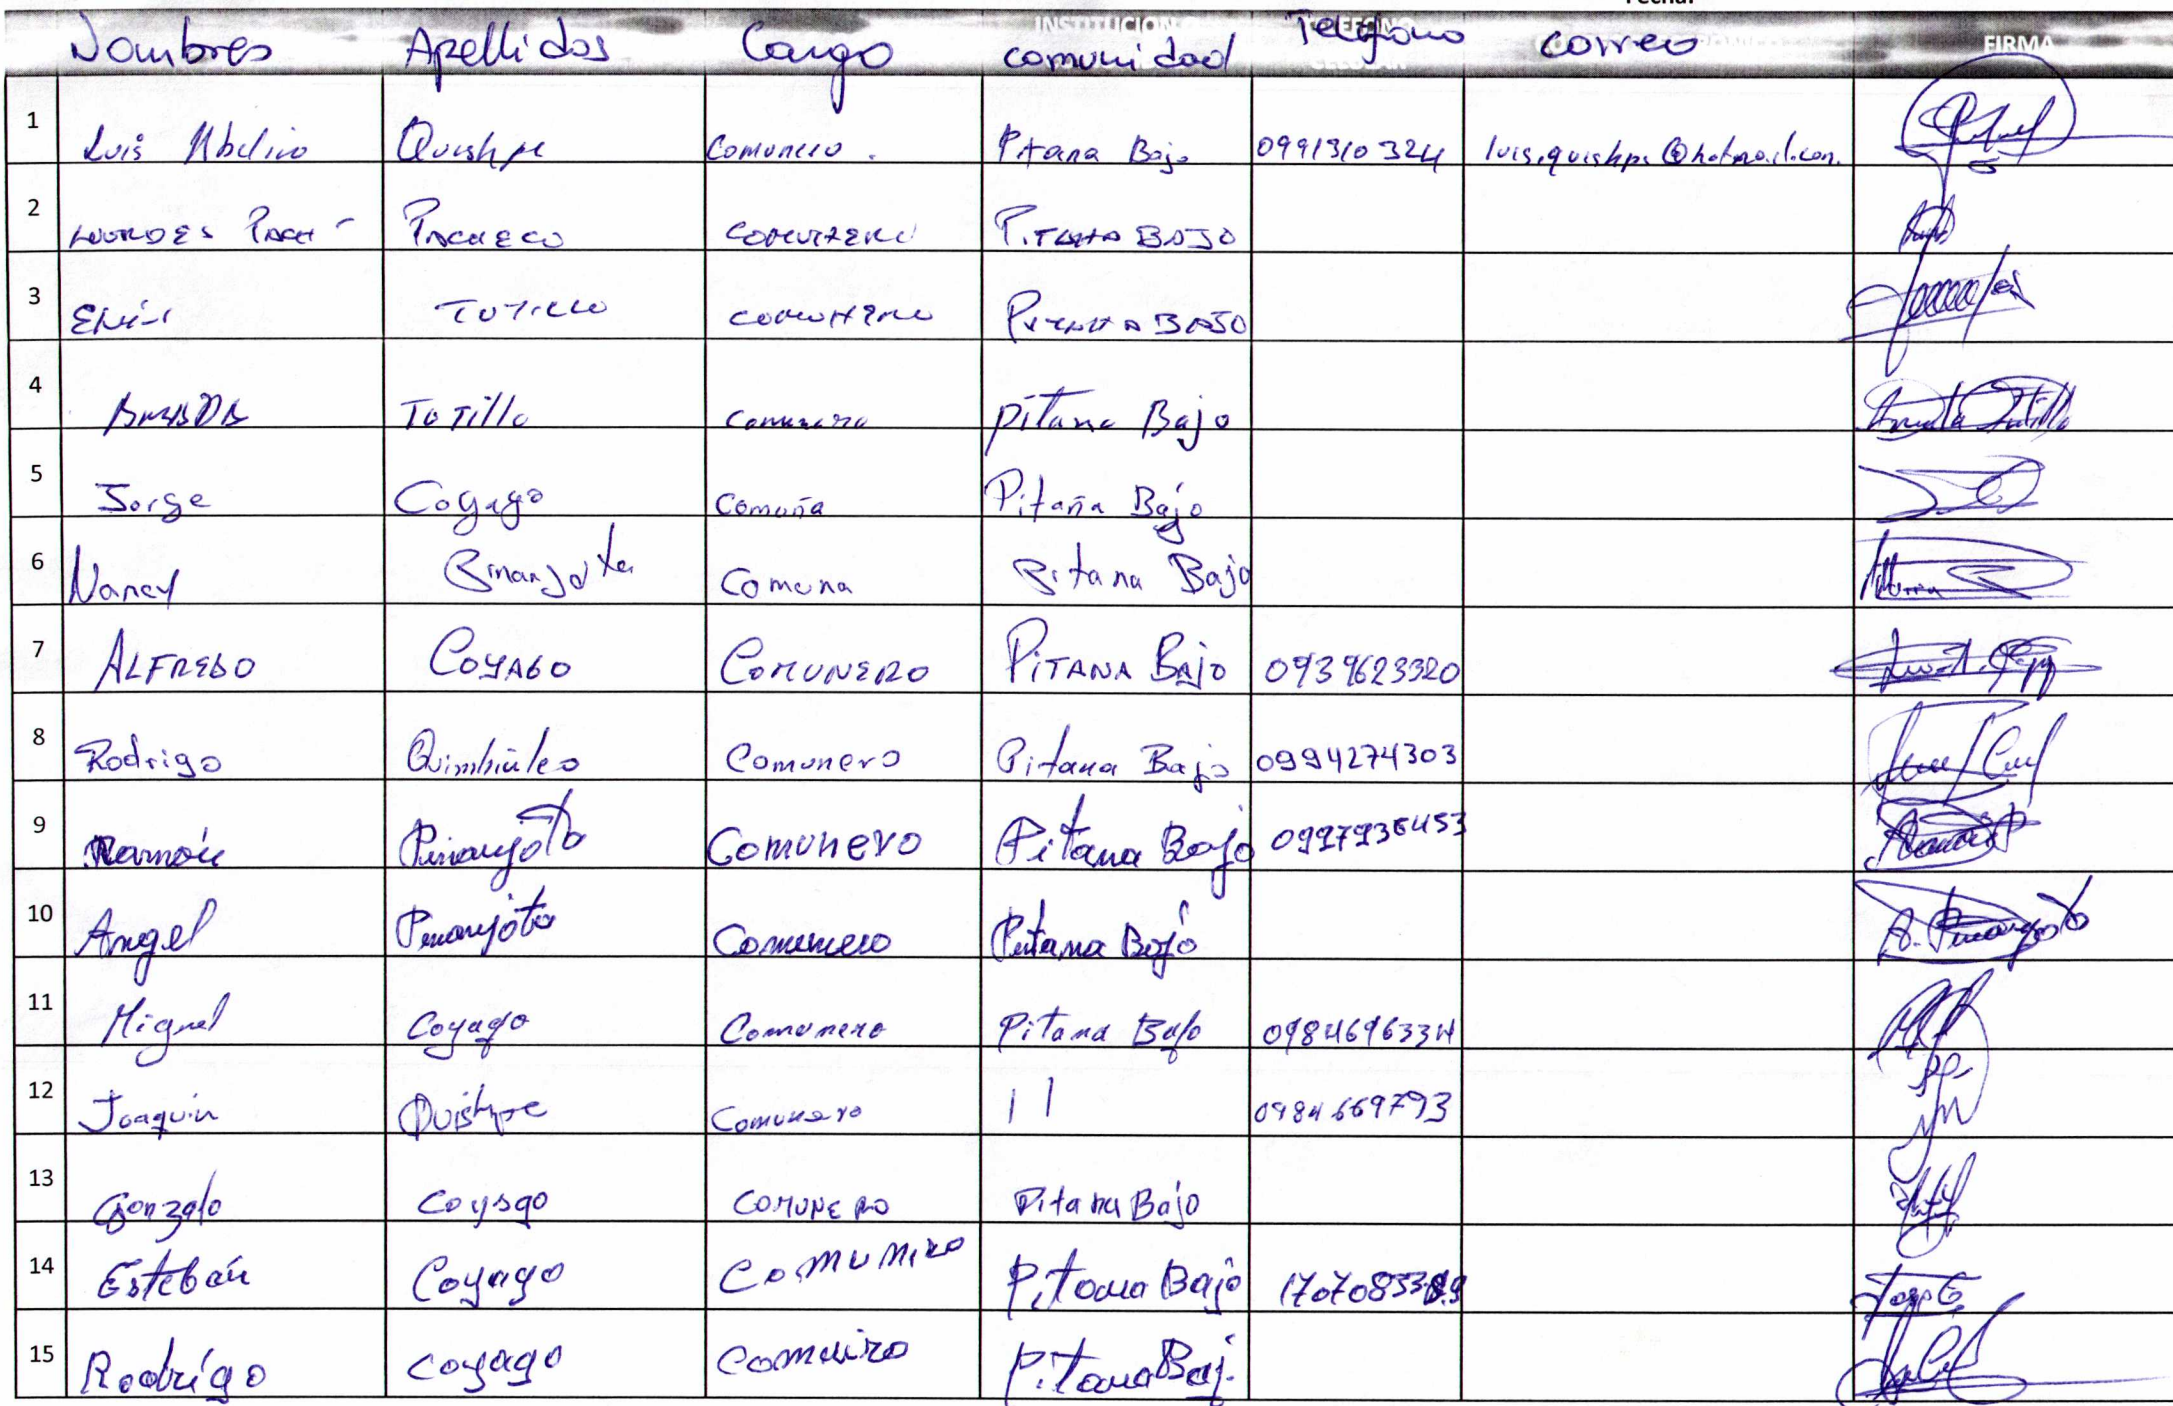 Nombres Apellidos Cargo comunidad Telefono correo FIRMA
1 Luis Abelino Quishpe Comunero. Pitana Bajo 0991310324 luis.quishpe@hotmail.com.
2 LOURDES PACHECO COMUNERO PITANA BAJO
3 TUTILLO COMUNERO PITANA BAJO
4 TuTillo Comunera pitana Bajo
5 Jorge Coyago Comuña Pitaña Bajo
6 Nancy Comuna Pitana Bajo
7 ALFREDO COYAGO COMUNERO PITANA BAjO 0939623320
8 Rodrigo Comunero Pitana Bajo 0994274303
9 Ramón Pinanjota Comunero Pitana Bajo 0997936453
10 Angel Pinanjota Comunero Pitana Bajo A. Pinanjota
11 Miguel Coyago Comunero Pitana Bajo 0984696334
12 Joaquin Quishpe Comunero 11 0984669793
13 Gonzalo Coyago COMUNERO Pitana Bajo
14 Esteban Coyago Comuniro Pitana Bajo
15 Rodrigo Coyago Comuniro Pitana Baj.